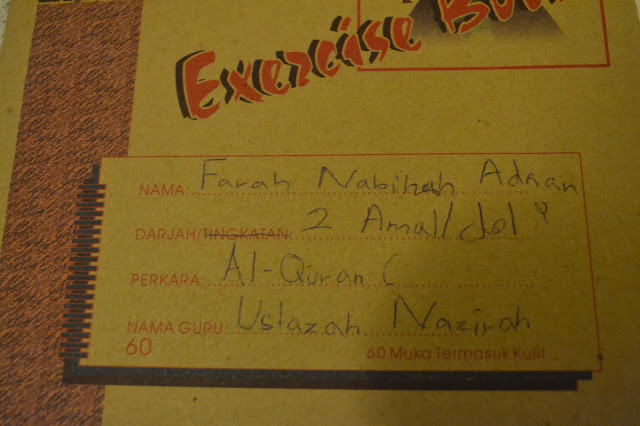 Exercise Book
NAMA: Farah Nabihah Adnan
DARJAH/TINGKATAN: 2 Amal/
PERKARA: Al-Quran (
NAMA GURU: Ustazah Nazirah
60
60 Muka Termasuk Kulit